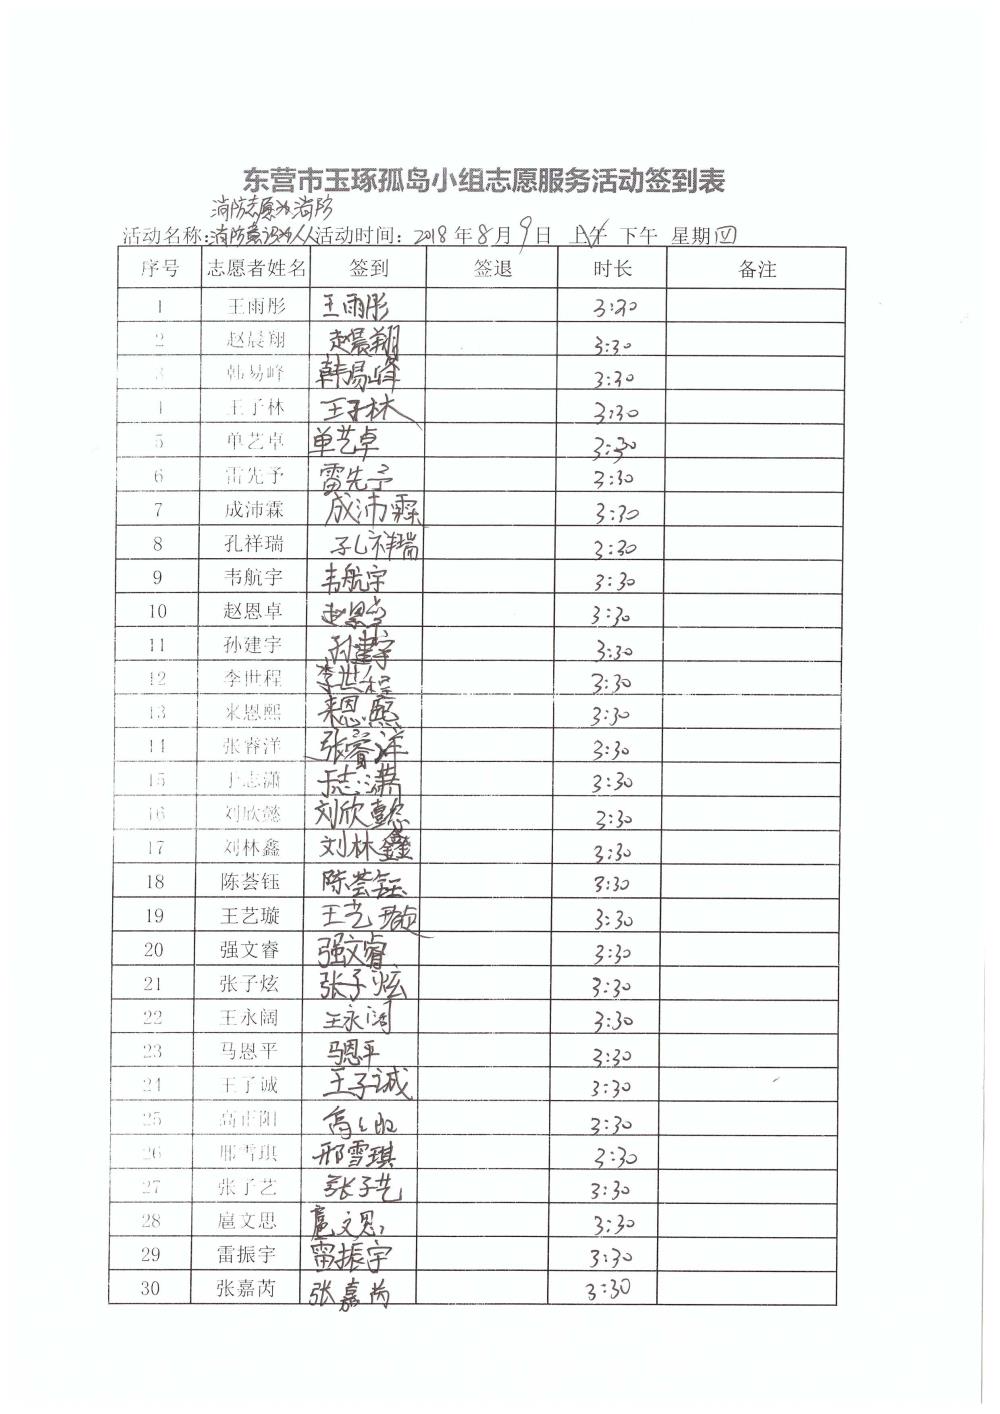 东营市玉琢孤岛小组志愿服务活动签到表
消防志愿为消防
活动名称:消防意识为人人活动时间: 2018 年 8 月 9 日 上午 下午 星期四
序号 志愿者姓名 签到 签退 时长 备注
1 王雨彤 王雨彤 3:30
2 赵晨翔 赵晨翔 3:30
3 韩易峰 韩易峰 3:30
4 王子林 王子林 3:30
5 单艺卓 单艺卓 3:30
6 雷先予 雷先予 3:30
7 成沛霖 成沛霖 3:30
8 孔祥瑞 孔祥瑞 3:30
9 韦航宇 韦航宇 3:30
10 赵恩卓 赵恩卓 3:30
11 孙建宇 孙建宇 3:30
12 李世程 李世程 3:30
13 来恩熙 来恩熙 3:30
14 张睿洋 张睿洋 3:30
15 于志潇 于志潇 3:30
16 刘欣懿 刘欣懿 3:30
17 刘林鑫 刘林鑫 3:30
18 陈荟钰 陈荟钰 3:30
19 王艺璇 王艺璇 3:30
20 强文睿 强文睿 3:30
21 张子炫 张子炫 3:30
22 王永阔 王永阔 3:30
23 马恩平 马恩平 3:30
24 王子诚 王子诚 3:30
25 高正阳 3:30
26 邢雪琪 邢雪琪 3:30
27 张子艺 张子艺 3:30
28 扈文思 扈文思 3:30
29 雷振宇 雷振宇 3:30
30 张嘉芮 张嘉芮 3:30